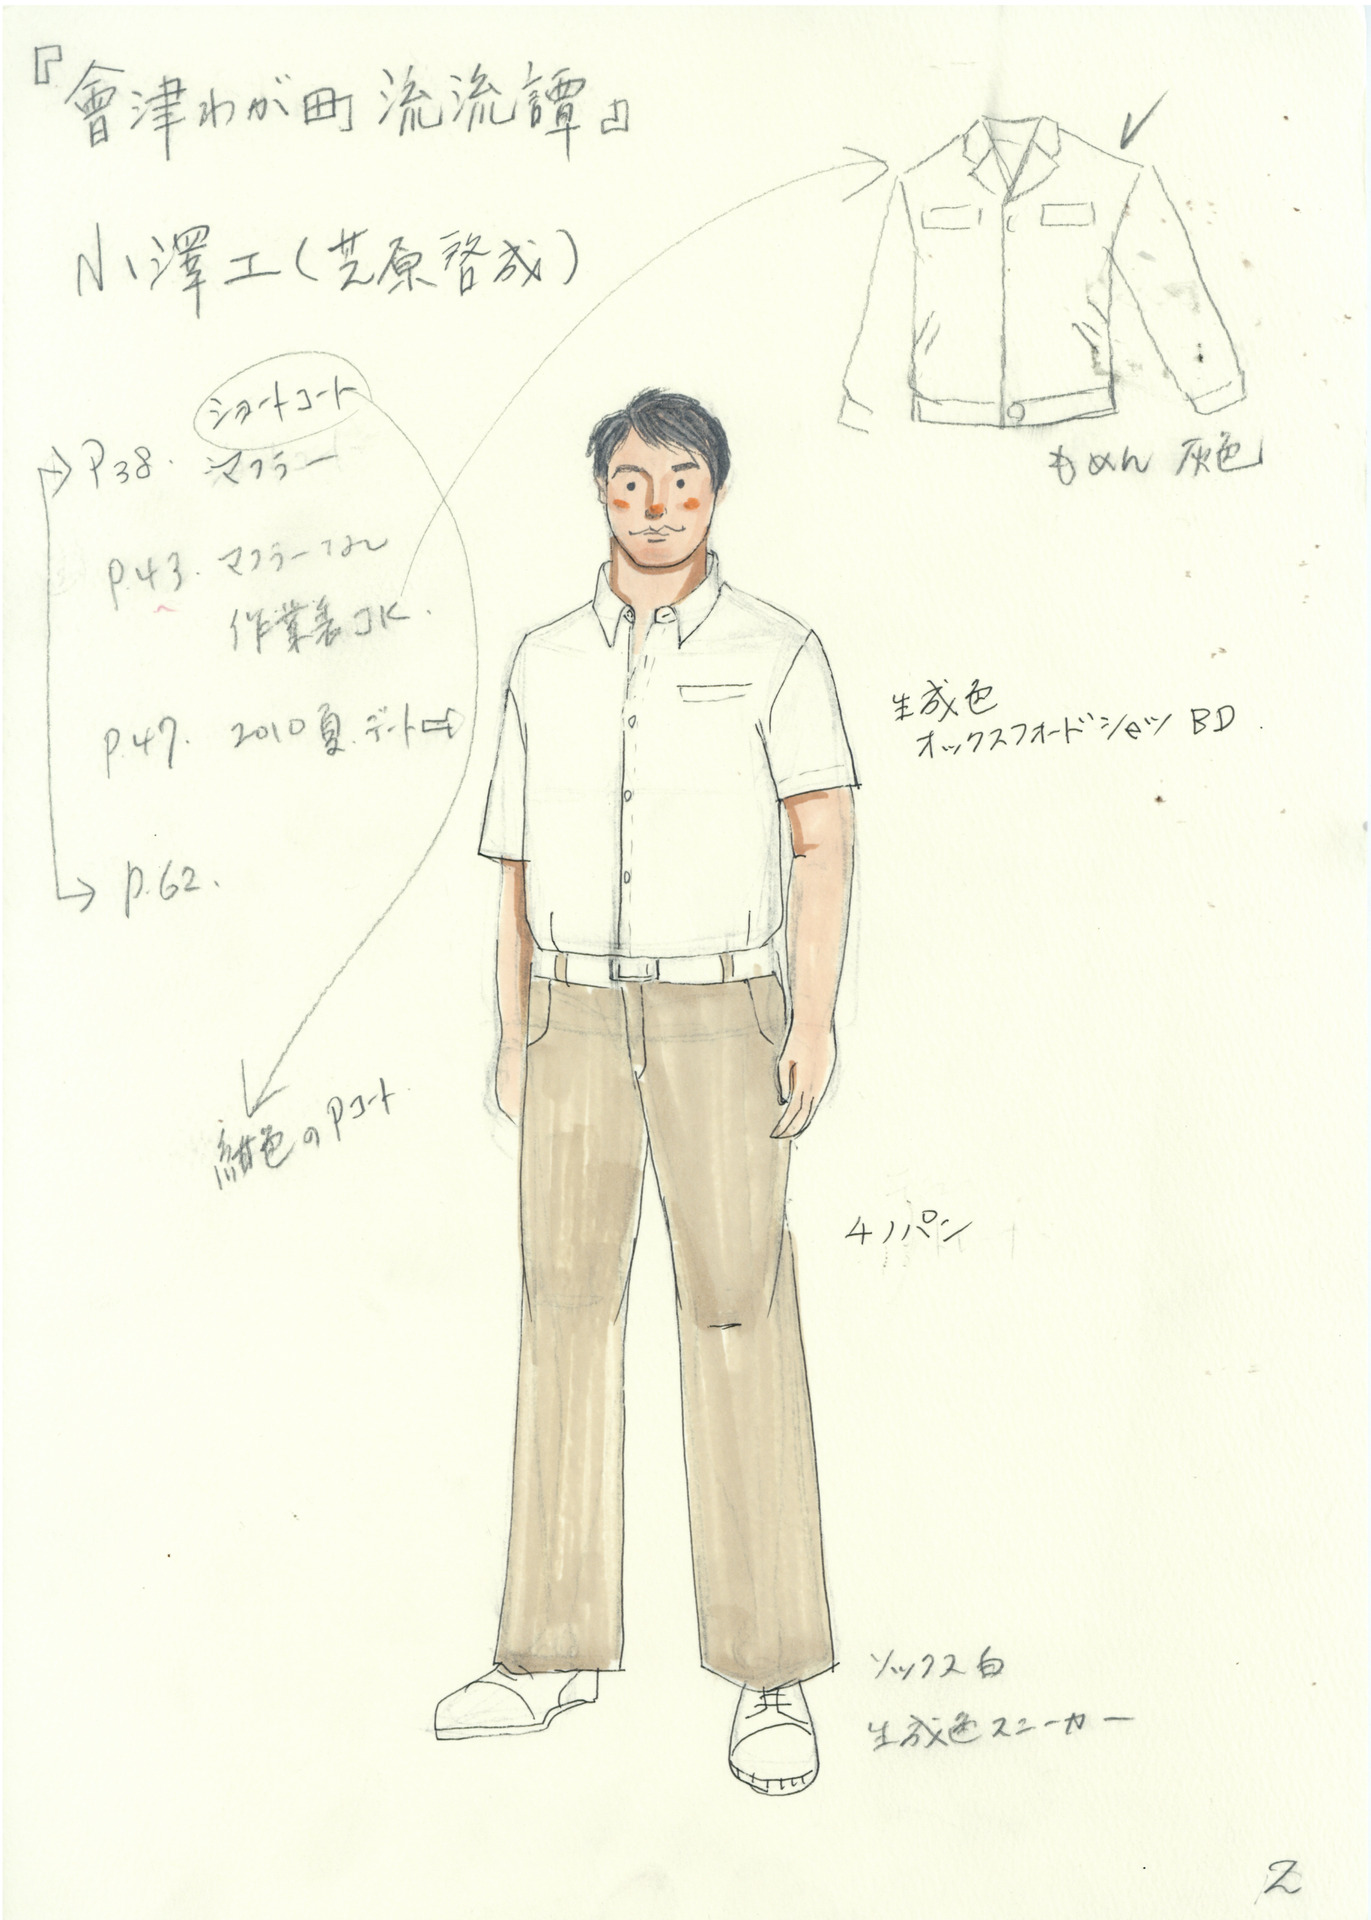 『會津わが町 流流譚』
小澤工(芝原啓成)
ショートコート
P38. マフラー
P.43. マフラーなし
作業着JK.
P.47. 2010夏.デート
P.62.
紺色のPコート
もめん 灰色
生成色
オックスフォードシャツ BD.
チノパン
ソックス白
生成色スニーカー
2